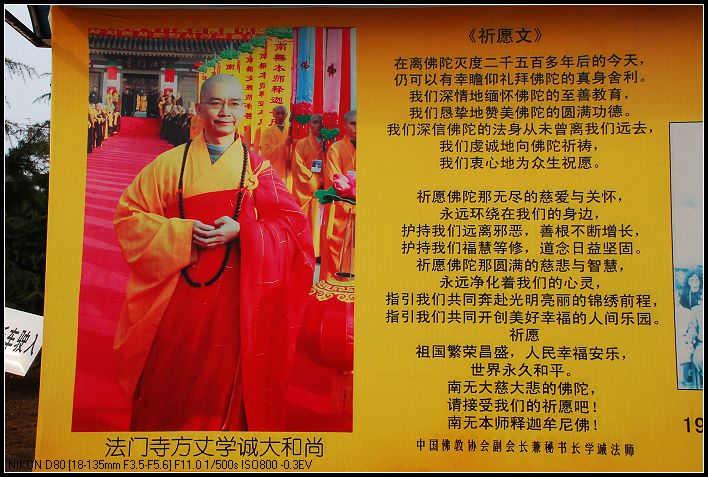 《祈愿文》
在离佛陀灭度二千五百多年后的今天，
仍可以有幸瞻仰礼拜佛陀的真身舍利。
我们深情地缅怀佛陀的至善教育，
我们恳挚地赞美佛陀的圆满功德。
我们深信佛陀的法身从未曾离我们远去，
我们虔诚地向佛陀祈祷，
我们衷心地为众生祝愿。
祈愿佛陀那无尽的慈爱与关怀，
永远环绕在我们的身边，
护持我们远离邪恶，善根不断增长，
护持我们福慧等修，道念日益坚固。
祈愿佛陀那圆满的慈悲与智慧，
永远净化着我们的心灵，
指引我们共同奔赴光明亮丽的锦绣前程，
指引我们共同开创美好幸福的人间乐园。
祈愿
祖国繁荣昌盛，人民幸福安乐，
世界永久和平。
南无大慈大悲的佛陀，
请接受我们的祈愿吧！
南无本师释迦牟尼佛！
中国佛教协会副会长兼秘书长学诚法师
法门寺方丈学诚大和尚
南無本師釋迦
车驶入
19
NIKON D80 [18-135mm F3.5-F5.6] F11.0 1/500s ISO800 -0.3EV